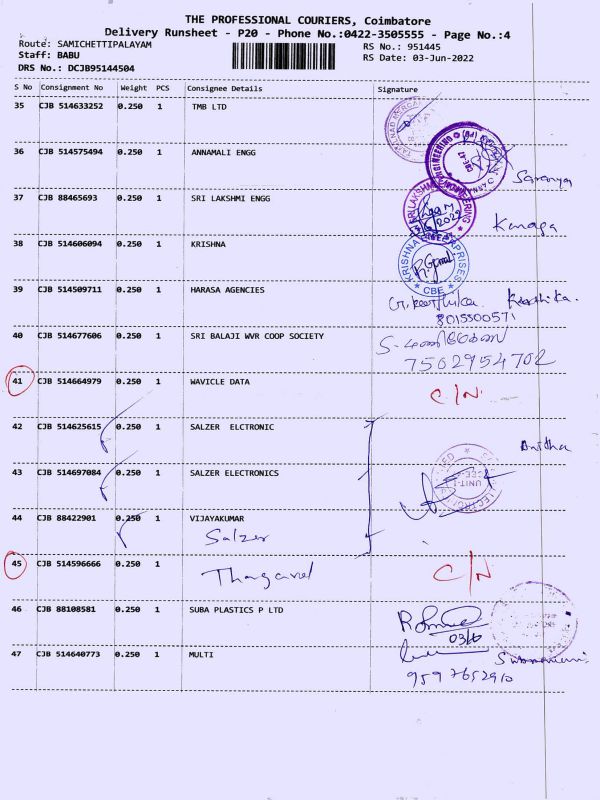 THE PROFESSIONAL COURIERS, Coimbatore
Delivery Runsheet - P20 - Phone No.:0422-3505555 - Page No.:4
Route: SAMICHETTIPALAYAM RS No.: 951445
Staff: BABU RS Date: 03-Jun-2022
DRS No.: DCJB95144504
S No Consignment No Weight PCS Consignee Details Signature
35 CJB 514633252 0.250 1 TMB LTD
36 CJB 514575494 0.250 1 ANNAMALI ENGG
Saranya
37 CJB 88465693 0.250 1 SRI LAKSHMI ENGG
Kanaga
38 CJB 514606094 0.250 1 KRISHNA
KRISHNA ENTERPRISES
CBE
39 CJB 514509711 0.250 1 HARASA AGENCIES
G. Keerthika Keerthika.
8015500571
40 CJB 514677606 0.250 1 SRI BALAJI WVR COOP SOCIETY
7502954702
41 CJB 514664979 0.250 1 WAVICLE DATA
C/N
42 CJB 514625615 0.250 1 SALZER ELCTRONIC
Anitha
43 CJB 514697084 0.250 1 SALZER ELECTRONICS
44 CJB 88422901 0.250 1 VIJAYAKUMAR
Salzer
45 CJB 514596666 0.250 1
Thangavel
C/N
46 CJB 88108581 0.250 1 SUBA PLASTICS P LTD
47 CJB 514640773 0.250 1 MULTI
9597652910